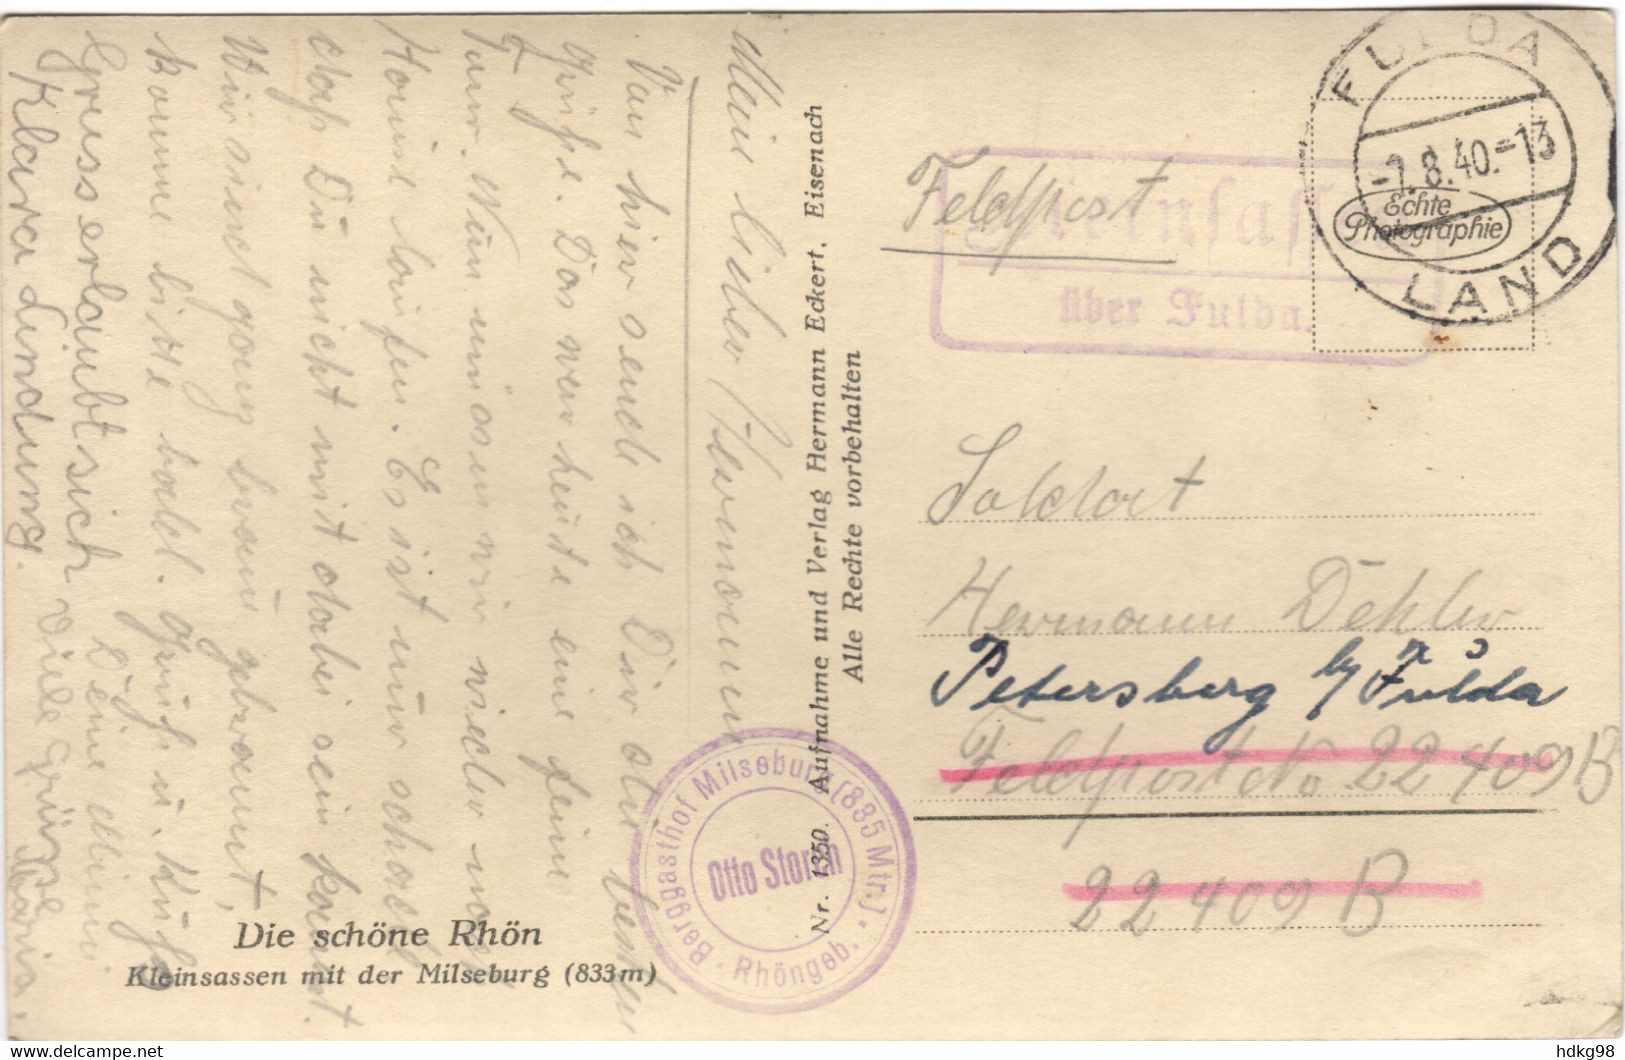 Mein lieber Hermann
Von hier sende ich Dir die besten
Grüße. Das war heute eine feine
Tour. Nun müssen wir wieder nach
Hause laufen. Es ist nur schade
daß Du nicht mit dabei sein kannst.
Wir sind ganz braun gebrannt,
komme bitte bald. Gruß u. Küße
Deine Mimi.
Gruss erlaubt sich
Klara Lindung.
Viele Grüsse
Maria.
Die schöne Rhön
Kleinsassen mit der Milseburg (833m)
Nr. 1350. Aufnahme und Verlag Hermann Eckert, Eisenach
Alle Rechte vorbehalten
Berggasthof Milseburg (835 Mtr.)
Rhöngeb.
Otto Storch
Feldpost
Kleinsass
über Fulda.
FULDA
-7.8.40.-13
LAND
Echte
Photographie
Soldat
Hermann Dehler
Petersberg b/ Fulda
Feldpost No 22409B
22409 B
www.delcampe.net
hdkg98